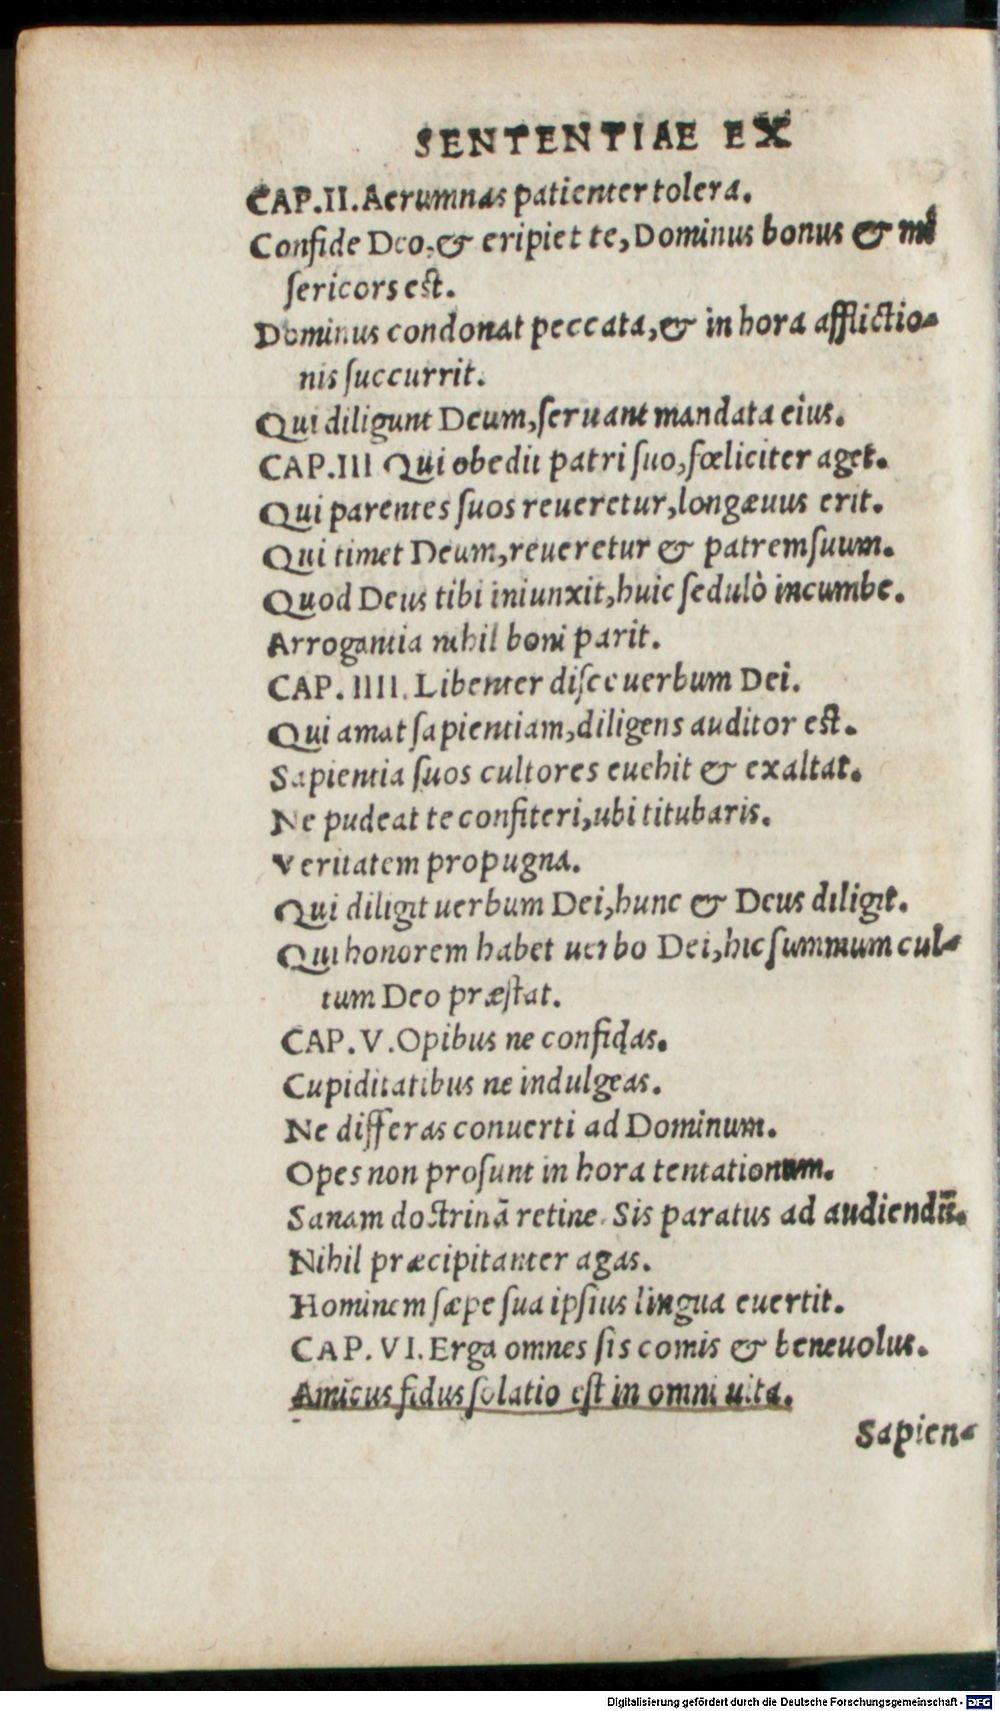 SENTENTIAE EX
CAP.II. Aerumnas patienter tolera.
Confide Deo, & eripiet te, Dominus bonus & mi
sericors est.
Dominus condonat peccata, & in hora afflictio-
nis succurrit.
Qui diligunt Deum, seruant mandata eius.
CAP.III Qui obedit patri suo, fœliciter aget.
Qui parentes suos reueretur, longæuus erit.
Qui timet Deum, reueretur & patrem suum.
Quod Deus tibi iniunxit, huic sedulò incumbe.
Arrogantia nihil boni parit.
CAP. IIII. Libenter disce uerbum Dei.
Qui amat sapientiam, diligens auditor est.
Sapientia suos cultores euehit & exaltat.
Ne pudeat te confiteri, ubi titubaris.
Veritatem propugna.
Qui diligit uerbum Dei, hunc & Deus diligit.
Qui honorem habet uerbo Dei, hic summum cul-
tum Deo præstat.
CAP. V. Opibus ne confidas.
Cupiditatibus ne indulgeas.
Ne differas conuerti ad Dominum.
Opes non prosunt in hora tentationum.
Sanam doctrinā retine. Sis paratus ad audiendū.
Nihil præcipitanter agas.
Hominem sæpe sua ipsius lingua euertit.
CAP. VI. Erga omnes sis comis & beneuolus.
Amicus fidus solatio est in omni uita.
Sapien-
Digitalisierung gefördert durch die Deutsche Forschungsgemeinschaft - DFG